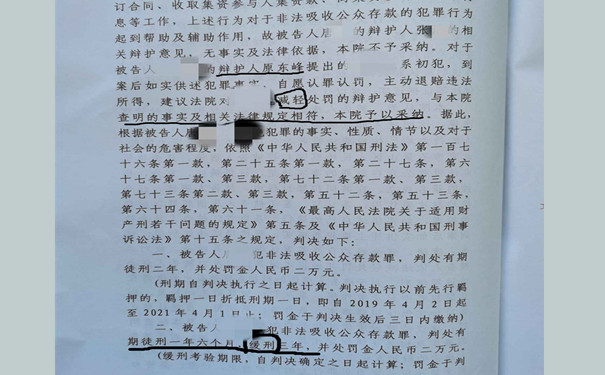 订合同、收取集资参与人集资款、
息等工作，上述行为对于非法吸收公众存款的犯罪行为
起到帮助及辅助作用，故被告人 的辩护人张 的相
关辩护意见，无事实及法律依据，本院不予采纳。对于
被告人 的辩护人原东峰提出的 系初犯，到
案后如实供述犯罪事实，自愿认罪认罚，主动退赔违法
所得，建议法院对 减轻处罚的辩护意见，与本院
查明的事实及相关法律规定相符，本院予以采纳。据此，
根据被告人 犯罪的事实、性质、情节以及对于
社会的危害程度，依照《中华人民共和国刑法》第一百七
十六条第一款，第二十五条第一款，第二十七条，第六
十七条第一款、第三款，第七十二条第一款、第三款，
第七十三条第二款、第三款，第五十二条，第五十三条，
第六十四条，第六十一条，《最高人民法院关于适用财
产刑若干问题的规定》第五条及《中华人民共和国刑事
诉讼法》第十五条之规定，判决如下：
一、被告人 犯非法吸收公众存款罪，判处有期
徒刑二年，并处罚金人民币二万元。
（刑期自判决执行之日起计算。判决执行以前先行羁
押的，羁押一日折抵刑期一日，即自2019年4月2日起
至2021年4月1日止；罚金于判决生效后三日内缴纳）
二、被告人 犯非法吸收公众存款罪，判处有
期徒刑一年六个月，缓刑三年，并处罚金人民币二万元。
（缓刑考验期限，自判决确定之日起计算；罚金于判